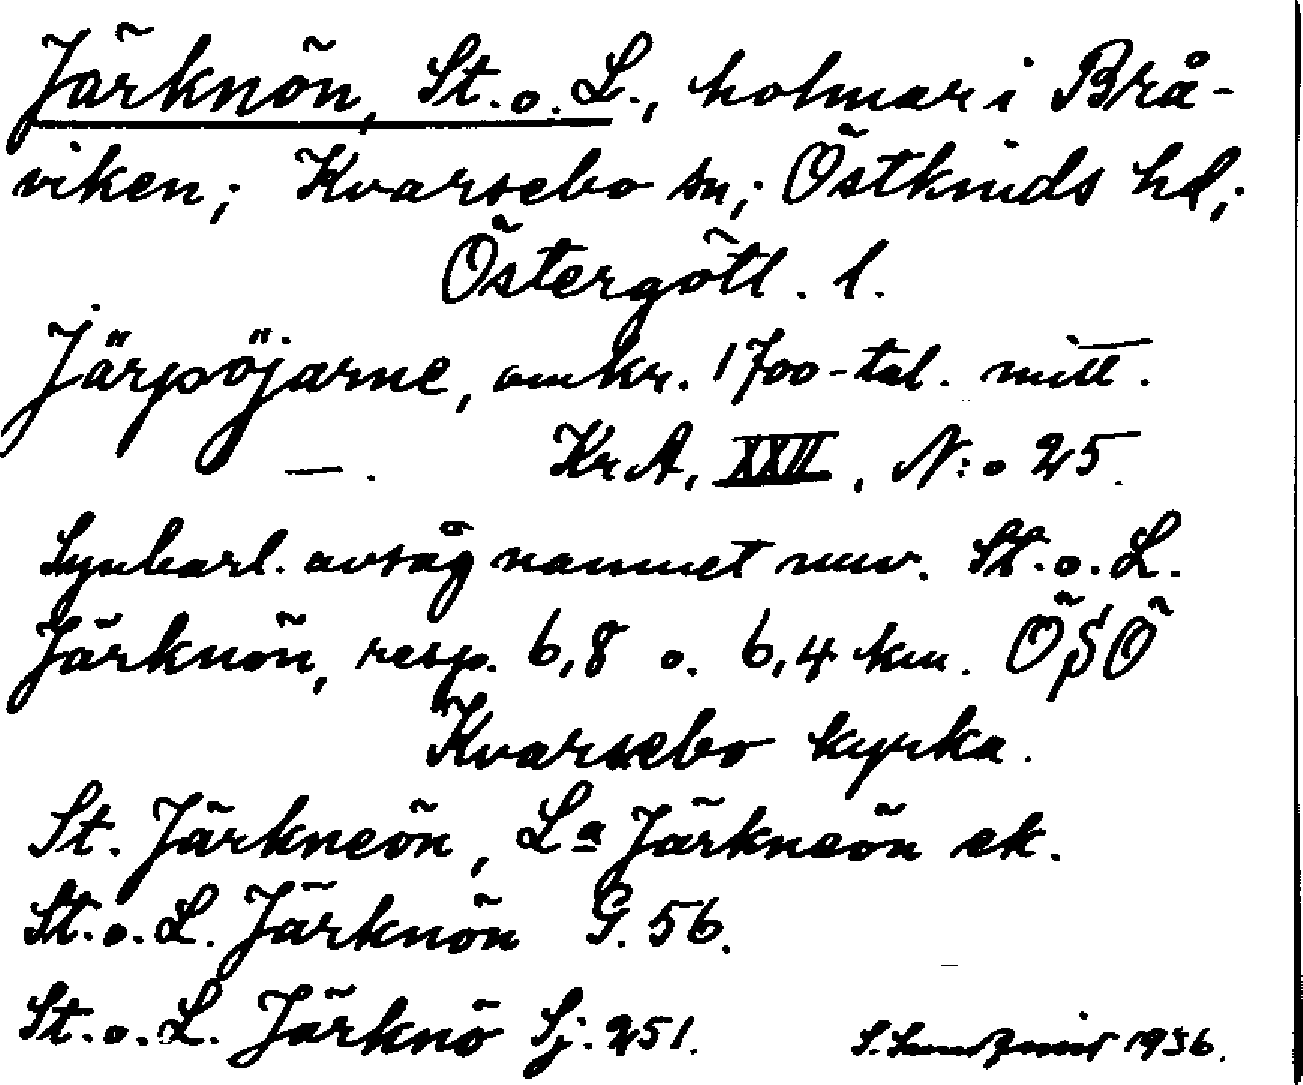 Järknön, St. o. L., holmar i Brå-
viken; Kvarsebo sn; Östkinds hd;
Östergötl. l.
Järpöjarne, omkr. 1700-tal. mitt.
— . KrA, XXII, N:o 25.
Synbarl. avsåg namnet nuv. St. o. L.
Järknön, resp. 6,8 o. 6,4 km. ÖSÖ
Kvarsebo kyrka.
St. Järkneön, La Järkneön ek.
St. o. L. Järknön G. 56.
St. o. L. Järknö Sj. 251. 1936.